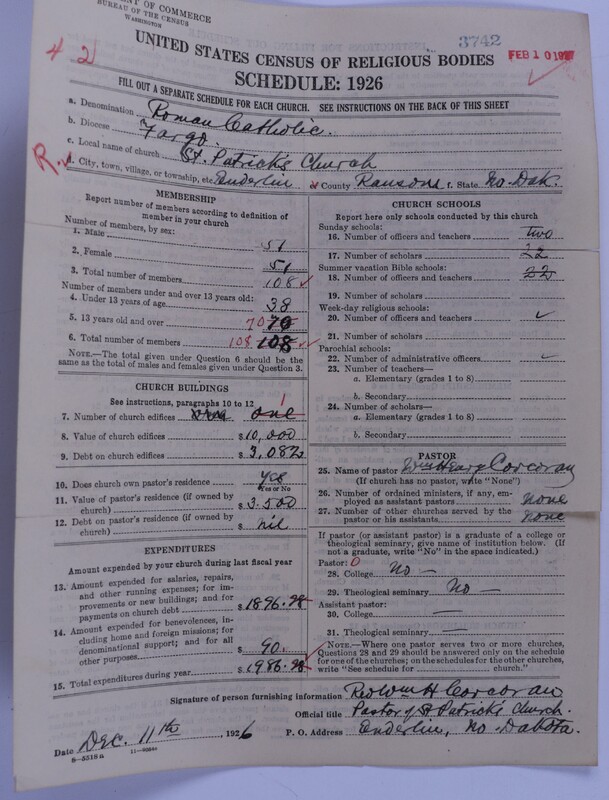 NT OF COMMERCE
BUREAU OF THE CENSUS
WASHINGTON
3742
FEB 10 1927
4 2
UNITED STATES CENSUS OF RELIGIOUS BODIES
SCHEDULE: 1926
FILL OUT A SEPARATE SCHEDULE FOR EACH CHURCH. SEE INSTRUCTIONS ON THE BACK OF THIS SHEET
a. Denomination Roman Catholic.
b. Diocese Fargo.
c. Local name of church St. Patrick's Church
R.
City, town, village, or township, etc. Enderlin County Ransom f. State No. Dak.
MEMBERSHIP
Report number of members according to definition of
member in your church
Number of members, by sex:
1. Male 51
2. Female 51
3. Total number of members 108
Number of members under and over 13 years old:
4. Under 13 years of age 38
5. 13 years old and over 70 70
6. Total number of members 108 108
NOTE.—The total given under Question 6 should be
same as the total of males and females given under Question 3.
CHURCH BUILDINGS
See instructions, paragraphs 10 to 12
7. Number of church edifices one 1
8. Value of church edifices $10,000
9. Debt on church edifices $3,082
10. Does church own pastor's residence yes
Yes or No
11. Value of pastor's residence (if owned by
church) $3.500
12. Debt on pastor's residence (if owned by
church) $ nil
EXPENDITURES
Amount expended by your church during last fiscal year
13. Amount expended for salaries, repairs,
and other running expenses; for im-
provements or new buildings; and for
payments on church debt $1896.98
14. Amount expended for benevolences, in-
cluding home and foreign missions; for
denominational support; and for all
other purposes $90.
15. Total expenditures during year $1986.98
CHURCH SCHOOLS
Report here only schools conducted by this church
Sunday schools:
16. Number of officers and teachers two
17. Number of scholars 22
Summer vacation Bible schools:
18. Number of officers and teachers 22
19. Number of scholars
Week-day religious schools:
20. Number of officers and teachers
21. Number of scholars
Parochial schools:
22. Number of administrative officers
23. Number of teachers—
a. Elementary (grades 1 to 8)
b. Secondary
24. Number of scholars—
a. Elementary (grades 1 to 8)
b. Secondary
PASTOR
25. Name of pastor Wm Henry Corcoran
(If church has no pastor, write "None")
26. Number of ordained ministers, if any, em-
ployed as assistant pastors none
27. Number of other churches served by the
pastor or his assistants none
If pastor (or assistant pastor) is a graduate of a college or
theological seminary, give name of institution below. (If
not a graduate, write "No" in the space indicated.)
Pastor: 0
28. College No —
29. Theological seminary No —
Assistant pastor:
30. College —
31. Theological seminary —
NOTE.—Where one pastor serves two or more churches,
Questions 28 and 29 should be answered only on the schedule
for one of the churches; on the schedules for the other churches,
write "See schedule for church."
Signature of person furnishing information Rev Wm H Corcoran
Official title Pastor of St Patrick's Church.
Date Dec. 11th, 1926 P. O. Address Enderlin, No Dakota.
8-5318a